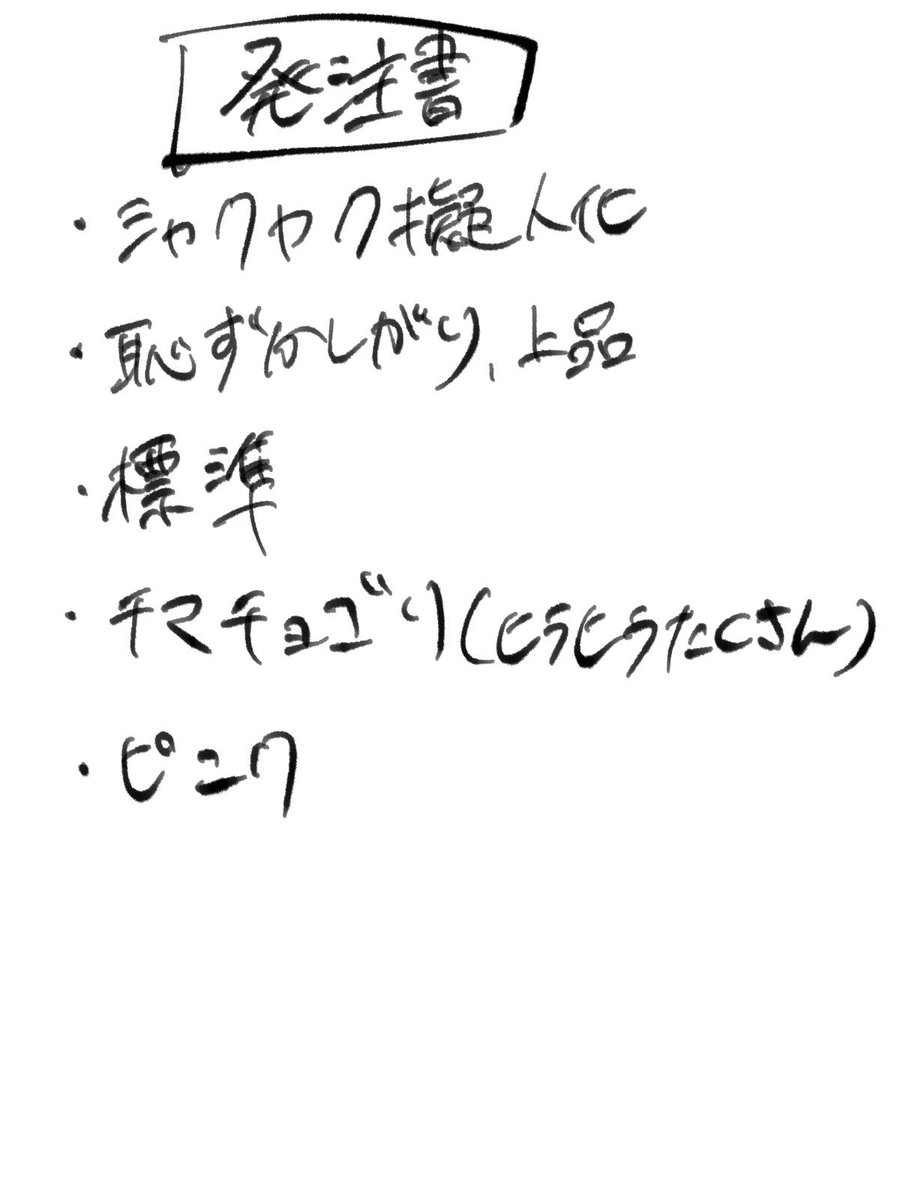 発注書
・シャクヤク擬人化
・恥ずかしがり、上品
・標準
・チマチョゴリ(ヒラヒラたくさん)
・ピンク